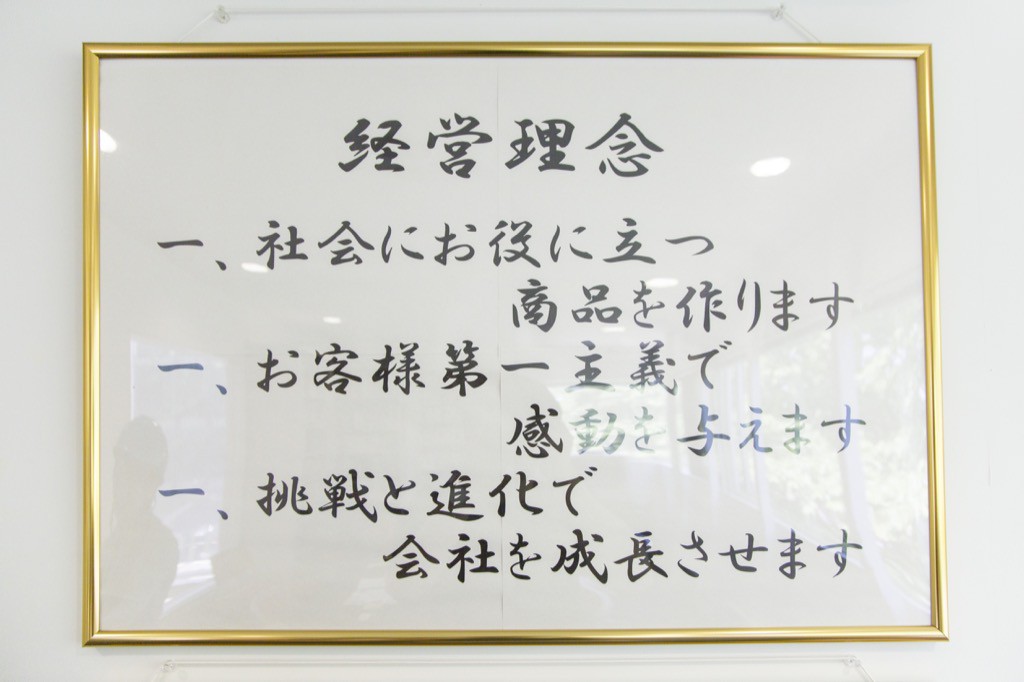 経営理念
一、社会にお役に立つ
商品を作ります
一、お客様第一主義で
感動を与えます
一、挑戦と進化で
会社を成長させます